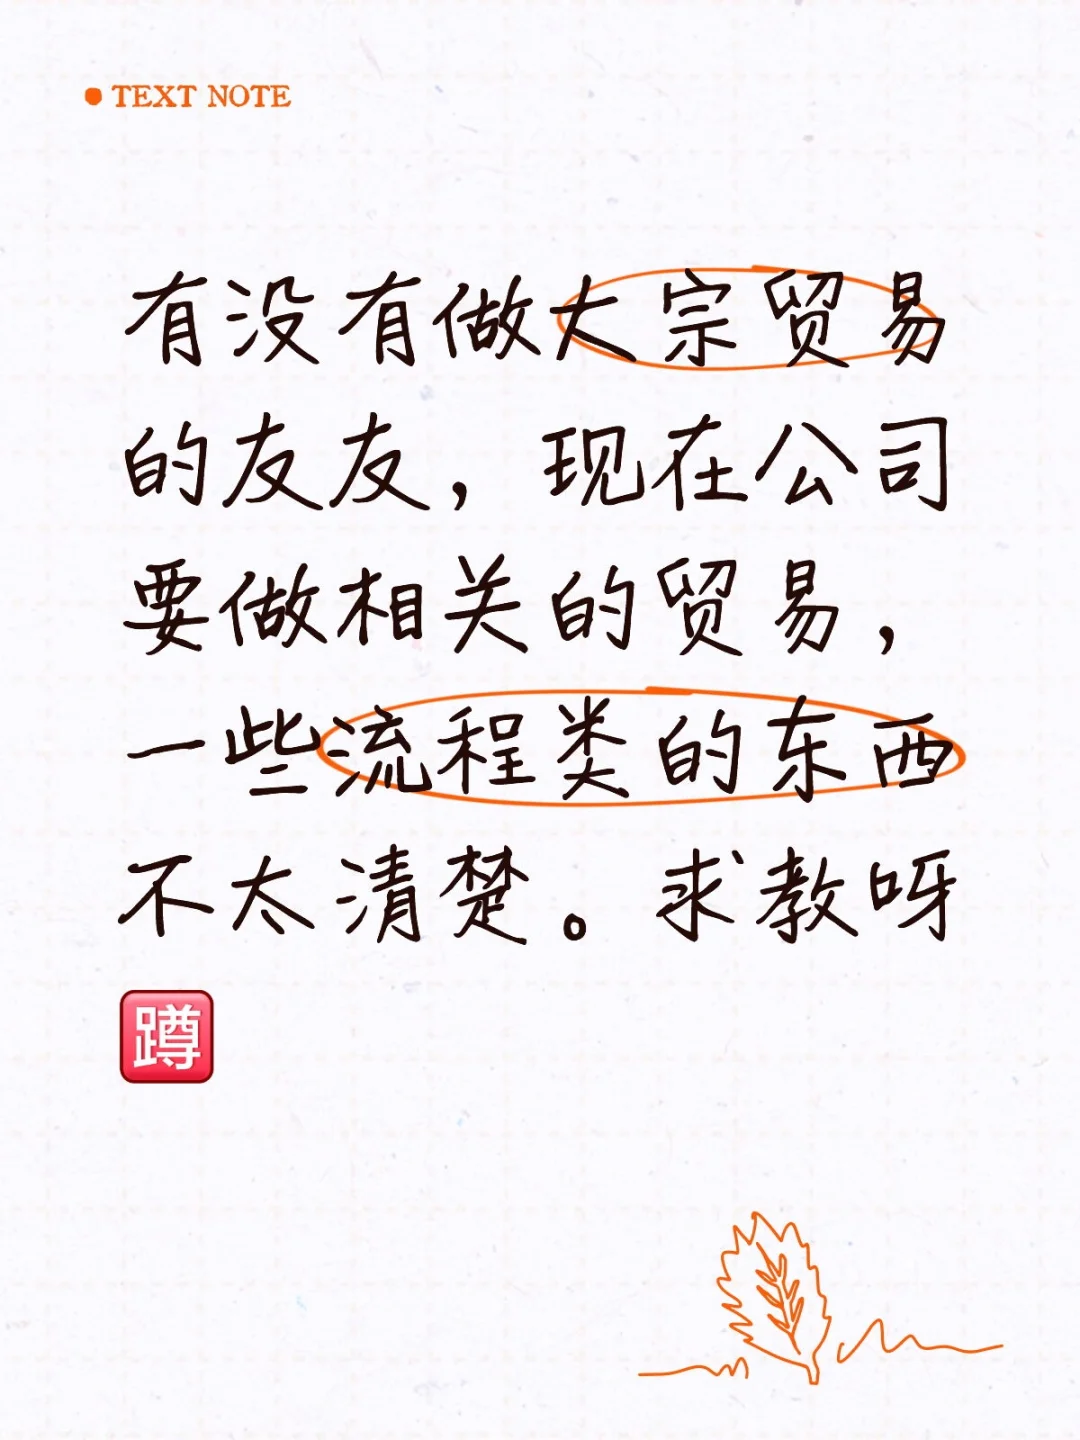 TEXT NOTE
有没有做大宗贸易
的友友，现在公司
要做相关的贸易，
一些流程类的东西
不太清楚。求教呀
蹲